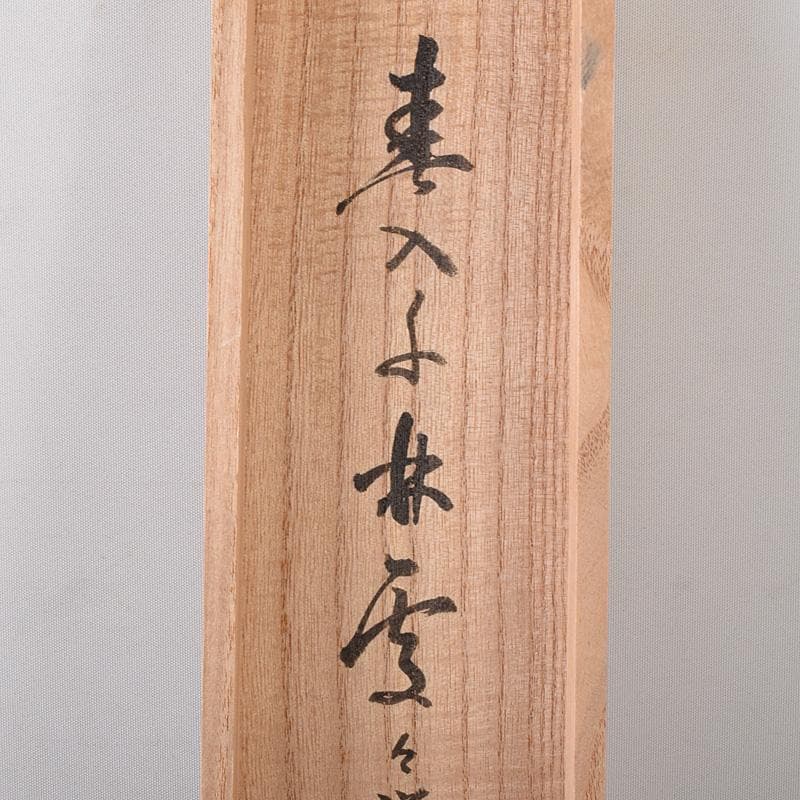 春入千林處々